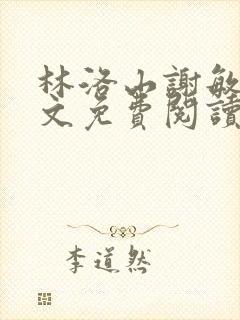 林洛山謝敏
文免費閱讀
李道然